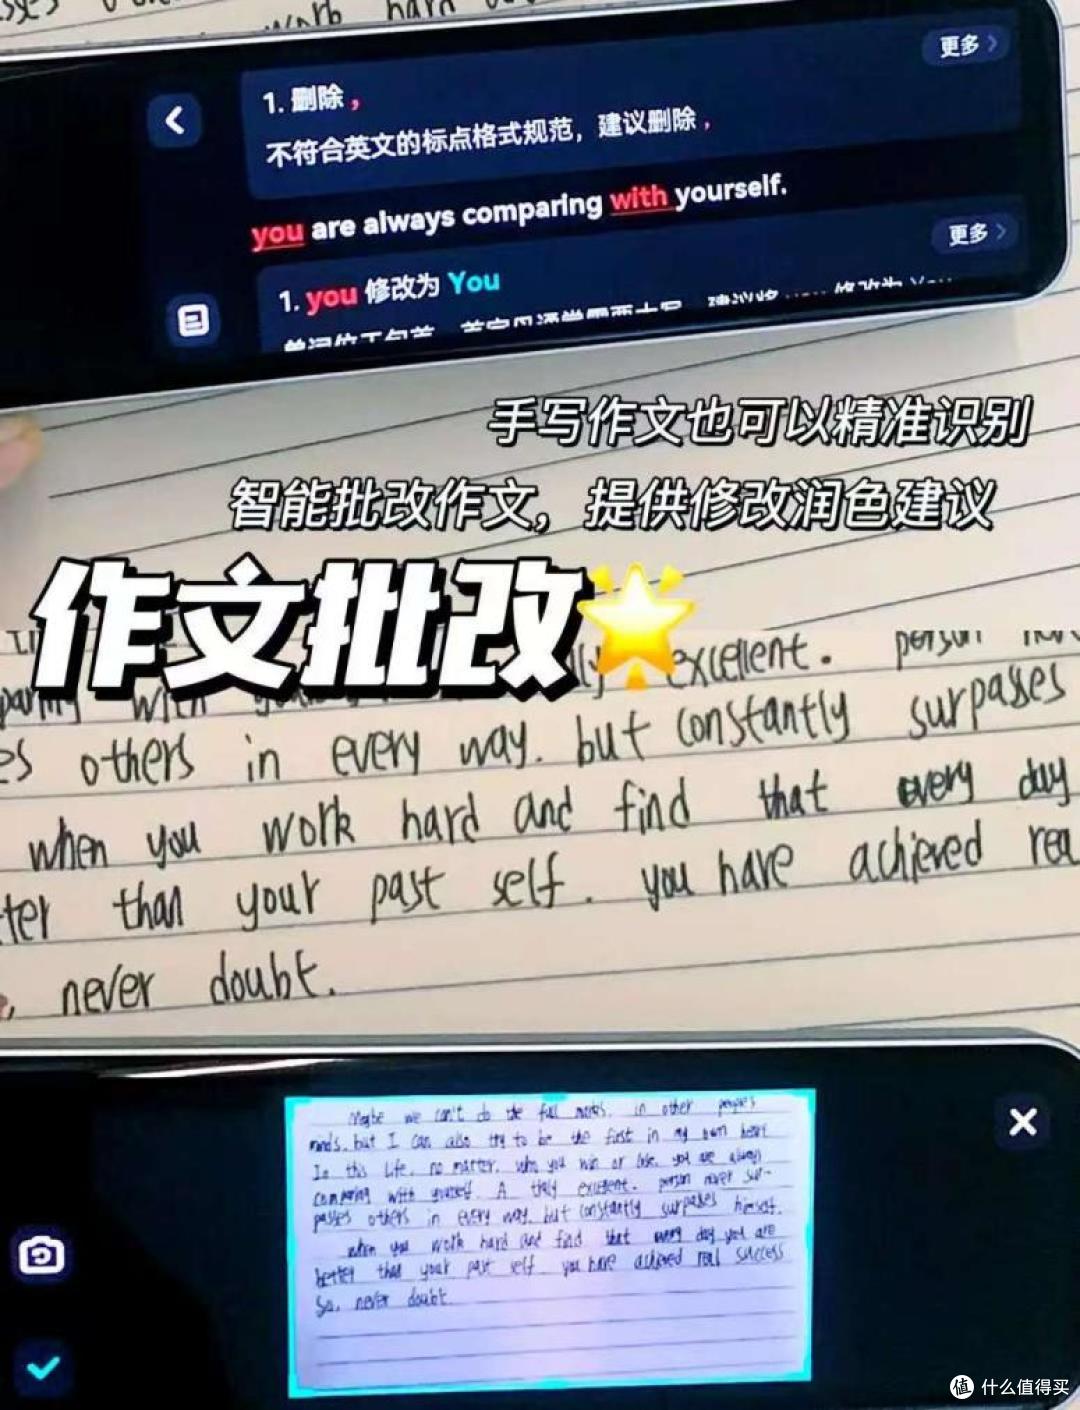 work hard
更多
1. 删除，
不符合英文的标点格式规范，建议删除，
you are always comparing with yourself.
更多
1. you 修改为 You
手写作文也可以精准识别
智能批改作文，提供修改润色建议
作文批改
excellent. person
others in every way. but constantly surpasses
when you work hard and find that every day
than your past self. you have achieved
never doubt.
Maybe we can't do the full marks. in other people's
minds. but I can also try to be the first in my own heart
In this life. no matter. who you win or lose. you are always
comparing with yourself. A truly excellent. person never sur-
passes others in every way. but constantly surpasses himself.
when you work hard and find that every day you are
better than your past self you have achieved real success
So, never doubt.
值 什么值得买